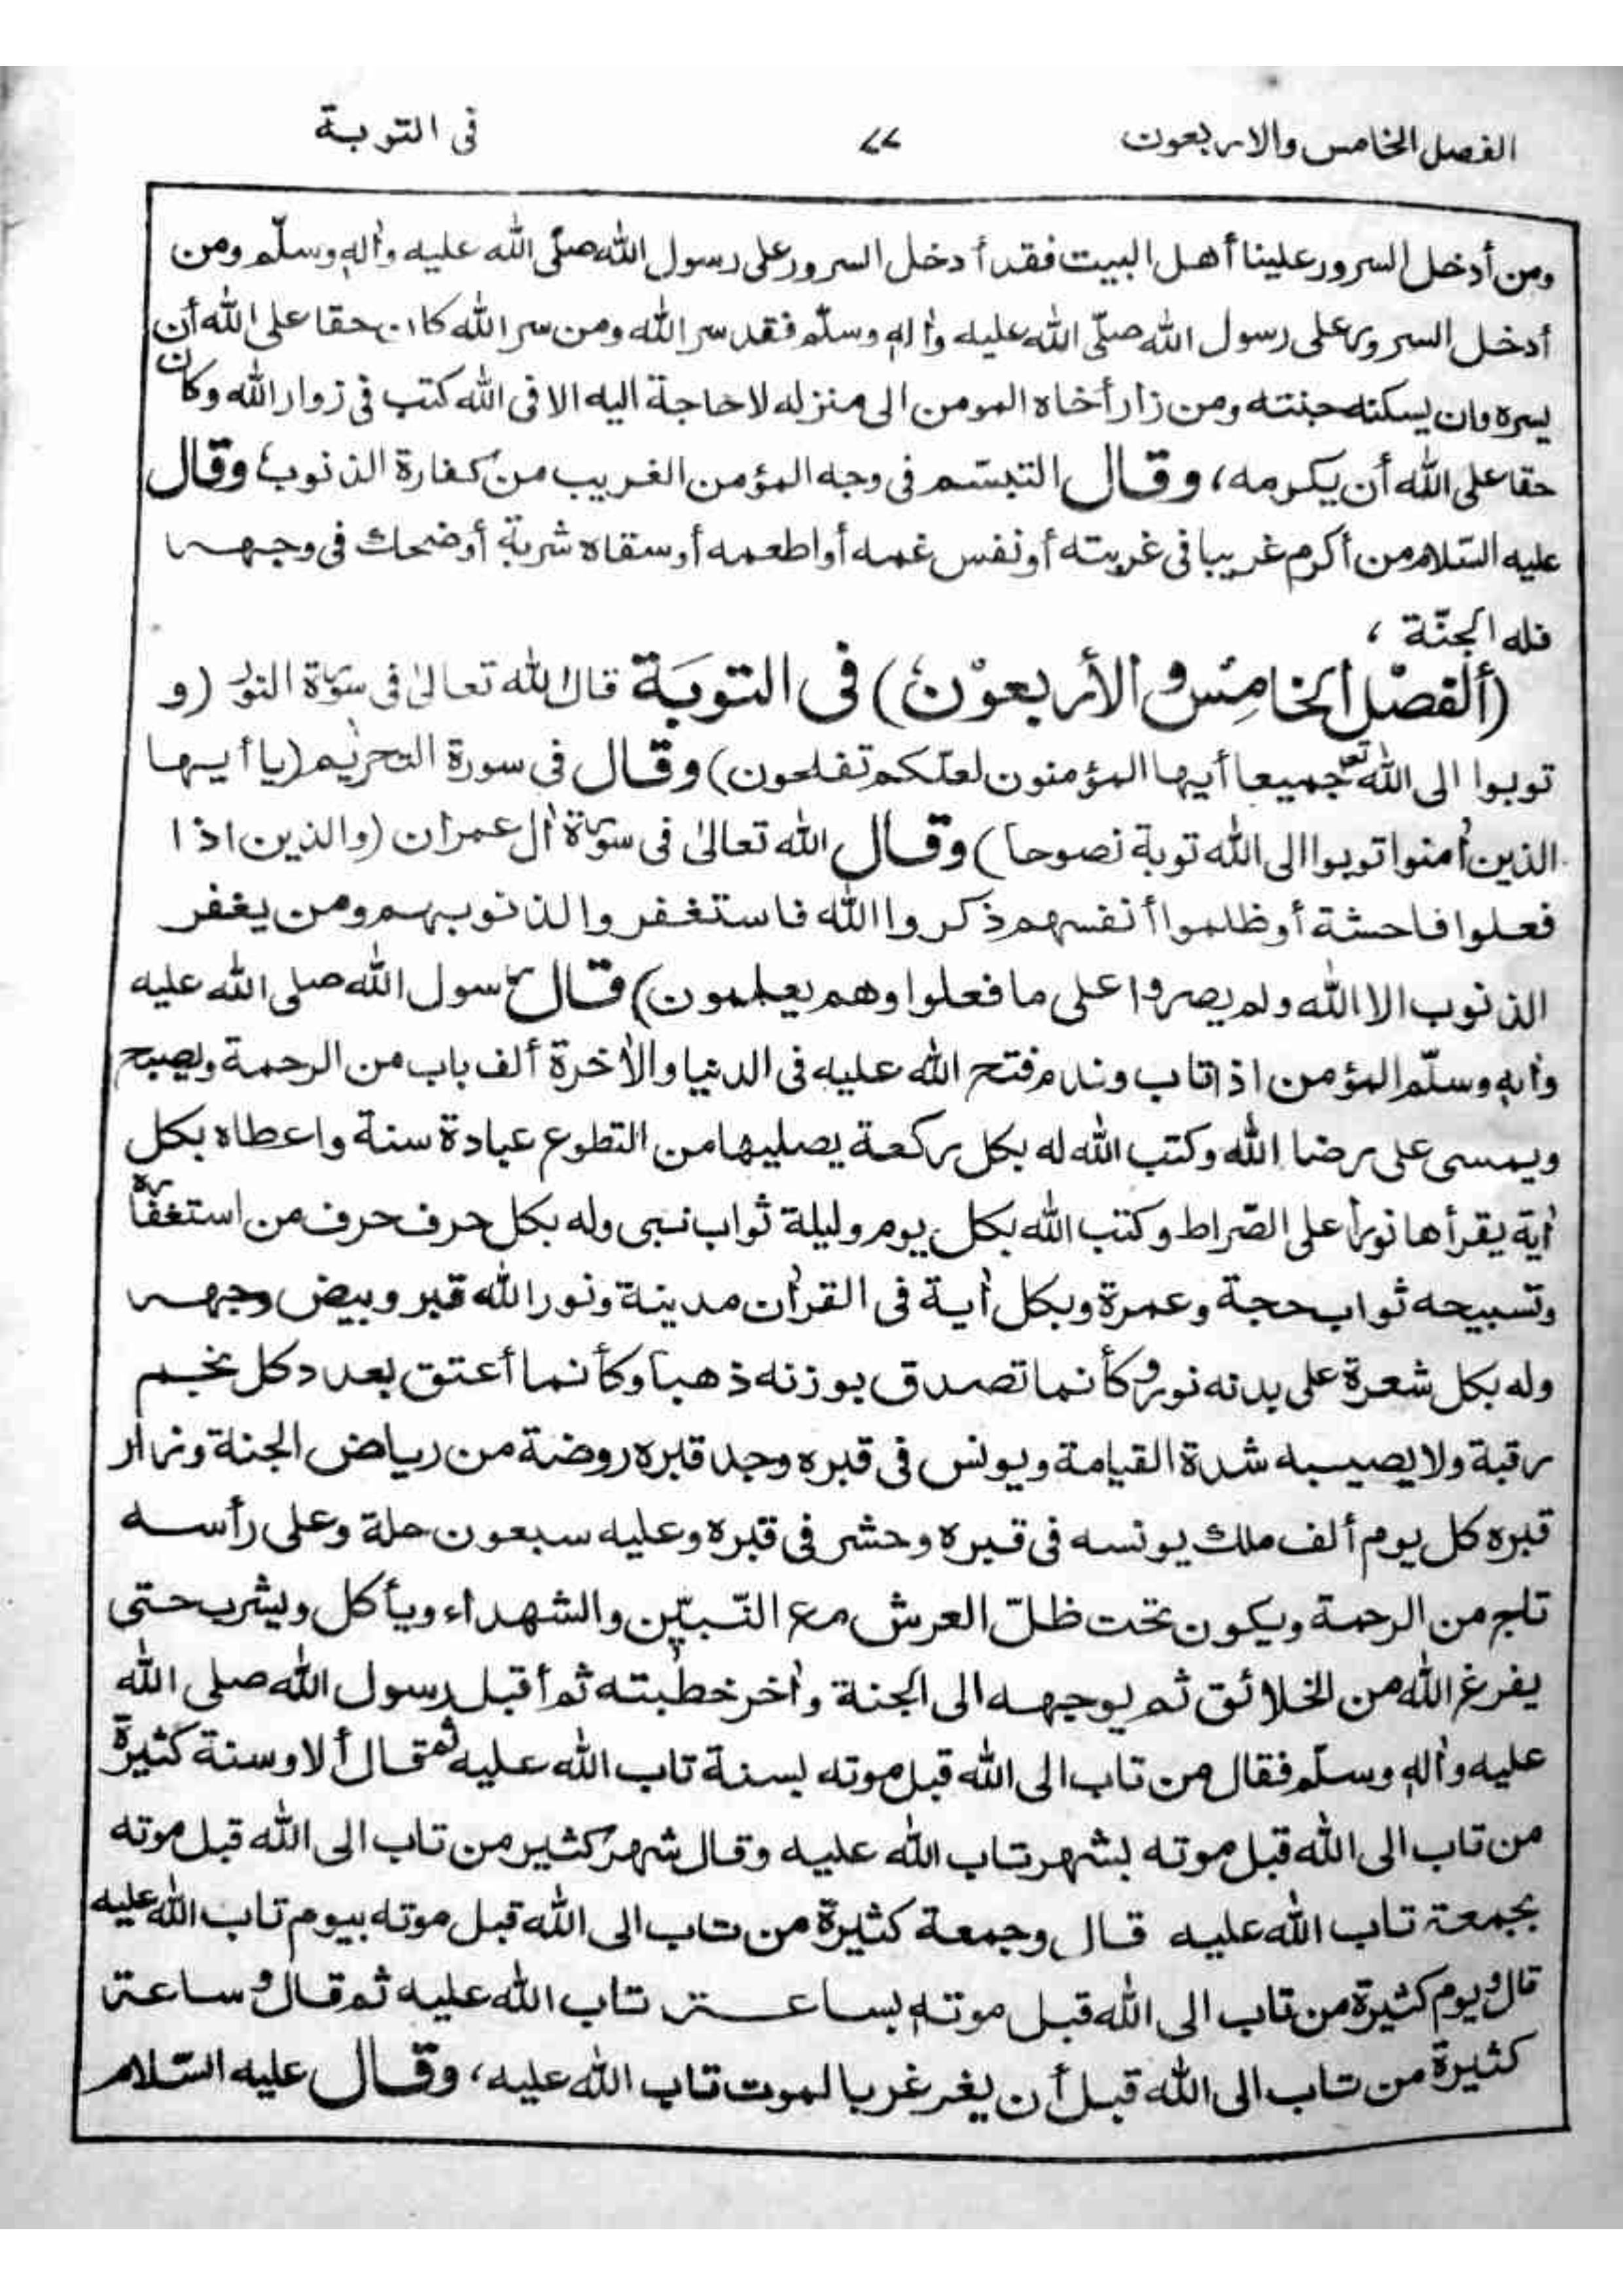 الفصل الخامس والاربعون ٧٧ فى التوبة
ومن أدخل السرور علينا أهل البيت فقد أدخل السرور على رسول الله صلّى الله عليه وأله وسلّم ومن
أدخل السرور على رسول الله صلّى الله عليه وأله وسلّم فقد سر الله ومن سر الله كان حقا على الله أن
يسره وان يسكنه جنته ومن زار أخاه المومن الى منزله لا حاجة اليه الا فى الله كتب فى زوار الله وكان
حقا على الله أن يكرمه، وقال التبسّم فى وجه المؤمن الغريب من كفارة الذنوب، وقال
عليه السّلام من أكرم غريبا فى غربته أو نفس غمه أو اطعمه أو سقاه شربة أو ضحك فى وجهه
فله الجنّة ،
(ألفصل الخامس و الأربعون) فى التوبَة قال الله تعالىٰ فى سورة النور (و
توبوا الى الله تع جميعا أيها المؤمنون لعلّكم تفلحون) وقال فى سورة التحريم (يا أيها
الذين أمنوا توبوا الى الله توبة نصوحا) وقال الله تعالىٰ فى سورة أل عمران (والذين اذا
فعلوا فاحشة أو ظلموا أنفسهم ذكروا الله فاستغفروا لذنوبهم ومن يغفر
الذنوب الا الله ولم يصروا على ما فعلوا وهم يعلمون) قال رسول الله صلى الله عليه
وأله وسلّم المؤمن اذا تاب وندم فتح الله عليه فى الدنيا والأخرة ألف باب من الرحمة ويصبح
ويمسى على رضا الله وكتب الله له بكل ركعة يصليها من التطوع عبادة سنة واعطاه بكل
أية يقرأها نورا على الصّراط وكتب الله بكل يوم وليلة ثواب نبى وله بكل حرف حرف من استغفاره
وتسبيحه ثواب حجة وعمرة وبكل أية فى القرأن مدينة ونور الله قبر وبيض وجهه
وله بكل شعرة على بدنه نور وكأنما تصدق بوزنه ذهبا وكأنما أعتق بعدد كل نجم
رقبة ولا يصيبه شدة القيامة ويونس فى قبره وجد قبره روضة من رياض الجنة وزار
قبره كل يوم ألف ملك يونسه فى قبره وحشر فى قبره وعليه سبعون حلة وعلى رأسه
تاج من الرحمة ويكون تحت ظلّ العرش مع النّبيّن والشهداء ويأكل ويشرب حتى
يفرغ الله من الخلائق ثم يوجهه الى الجنة وأخر خطبته ثم أقبل رسول الله صلى الله
عليه وأله وسلّم فقال من تاب الى الله قبل موته بسنة تاب الله عليه ثم قال ألا وسنة كثيرة
من تاب الى الله قبل موته بشهر تاب الله عليه وقال شهر كثير من تاب الى الله قبل موته
بجمعة تاب الله عليه قال وجمعة كثيرة من تاب الى الله قبل موته بيوم تاب الله عليه
قال ويوم كثيرة من تاب الى الله قبل موته بساعة تاب الله عليه ثم قال و ساعة
كثيرة من تاب الى الله قبل أن يغرغر بالموت تاب الله عليه، وقال عليه السّلام